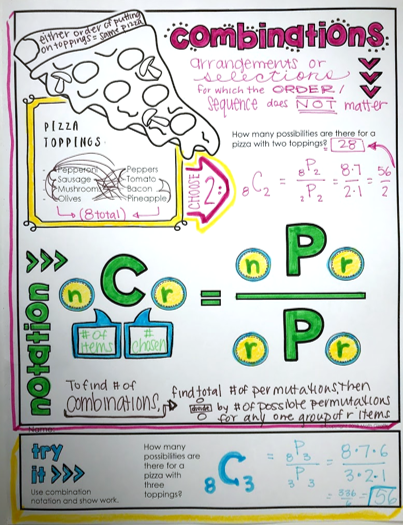 either order of putting
on toppings = same pizza
combinations
arrangements or
selections
for which the ORDER/
sequence does NOT matter
PIZZA
TOPPINGS
- Pepperoni - Peppers
- Sausage - Tomato
- Mushroom - Bacon
- Olives - Pineapple
(8 total)
CHOOSE
2:
How many possibilities are there for a
pizza with two toppings? 28
8C2 = 8P2 / 2P2 = 8·7 / 2·1 = 56 / 2
notation
nCr = nPr / rPr
# of items
# chosen
To find # of
combinations,
find total # of permutations, then
divide by # of possible permutations
for any one group of r items
Name:
try
it >>>
Use combination
notation and show work.
How many
possibilities are
there for a
pizza with
three
toppings?
8C3 = 8P3 / 3P3 = 8·7·6 / 3·2·1
= 336 / 6 = 56